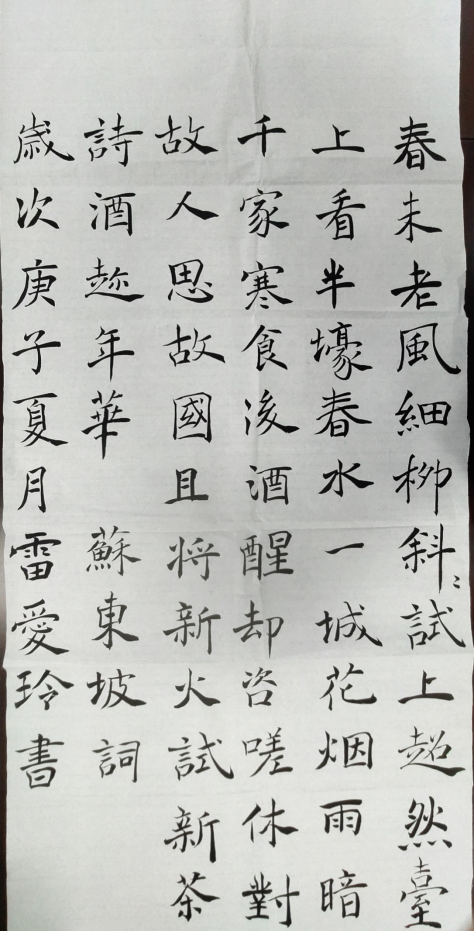 春未老風細柳斜〻試上超然臺
上看半壕春水一城花烟雨暗
千家寒食後酒醒却咨嗟休對
故人思故國且将新火試新茶
詩酒趂年華 蘇東坡詞
歲次庚子夏月雷愛玲書